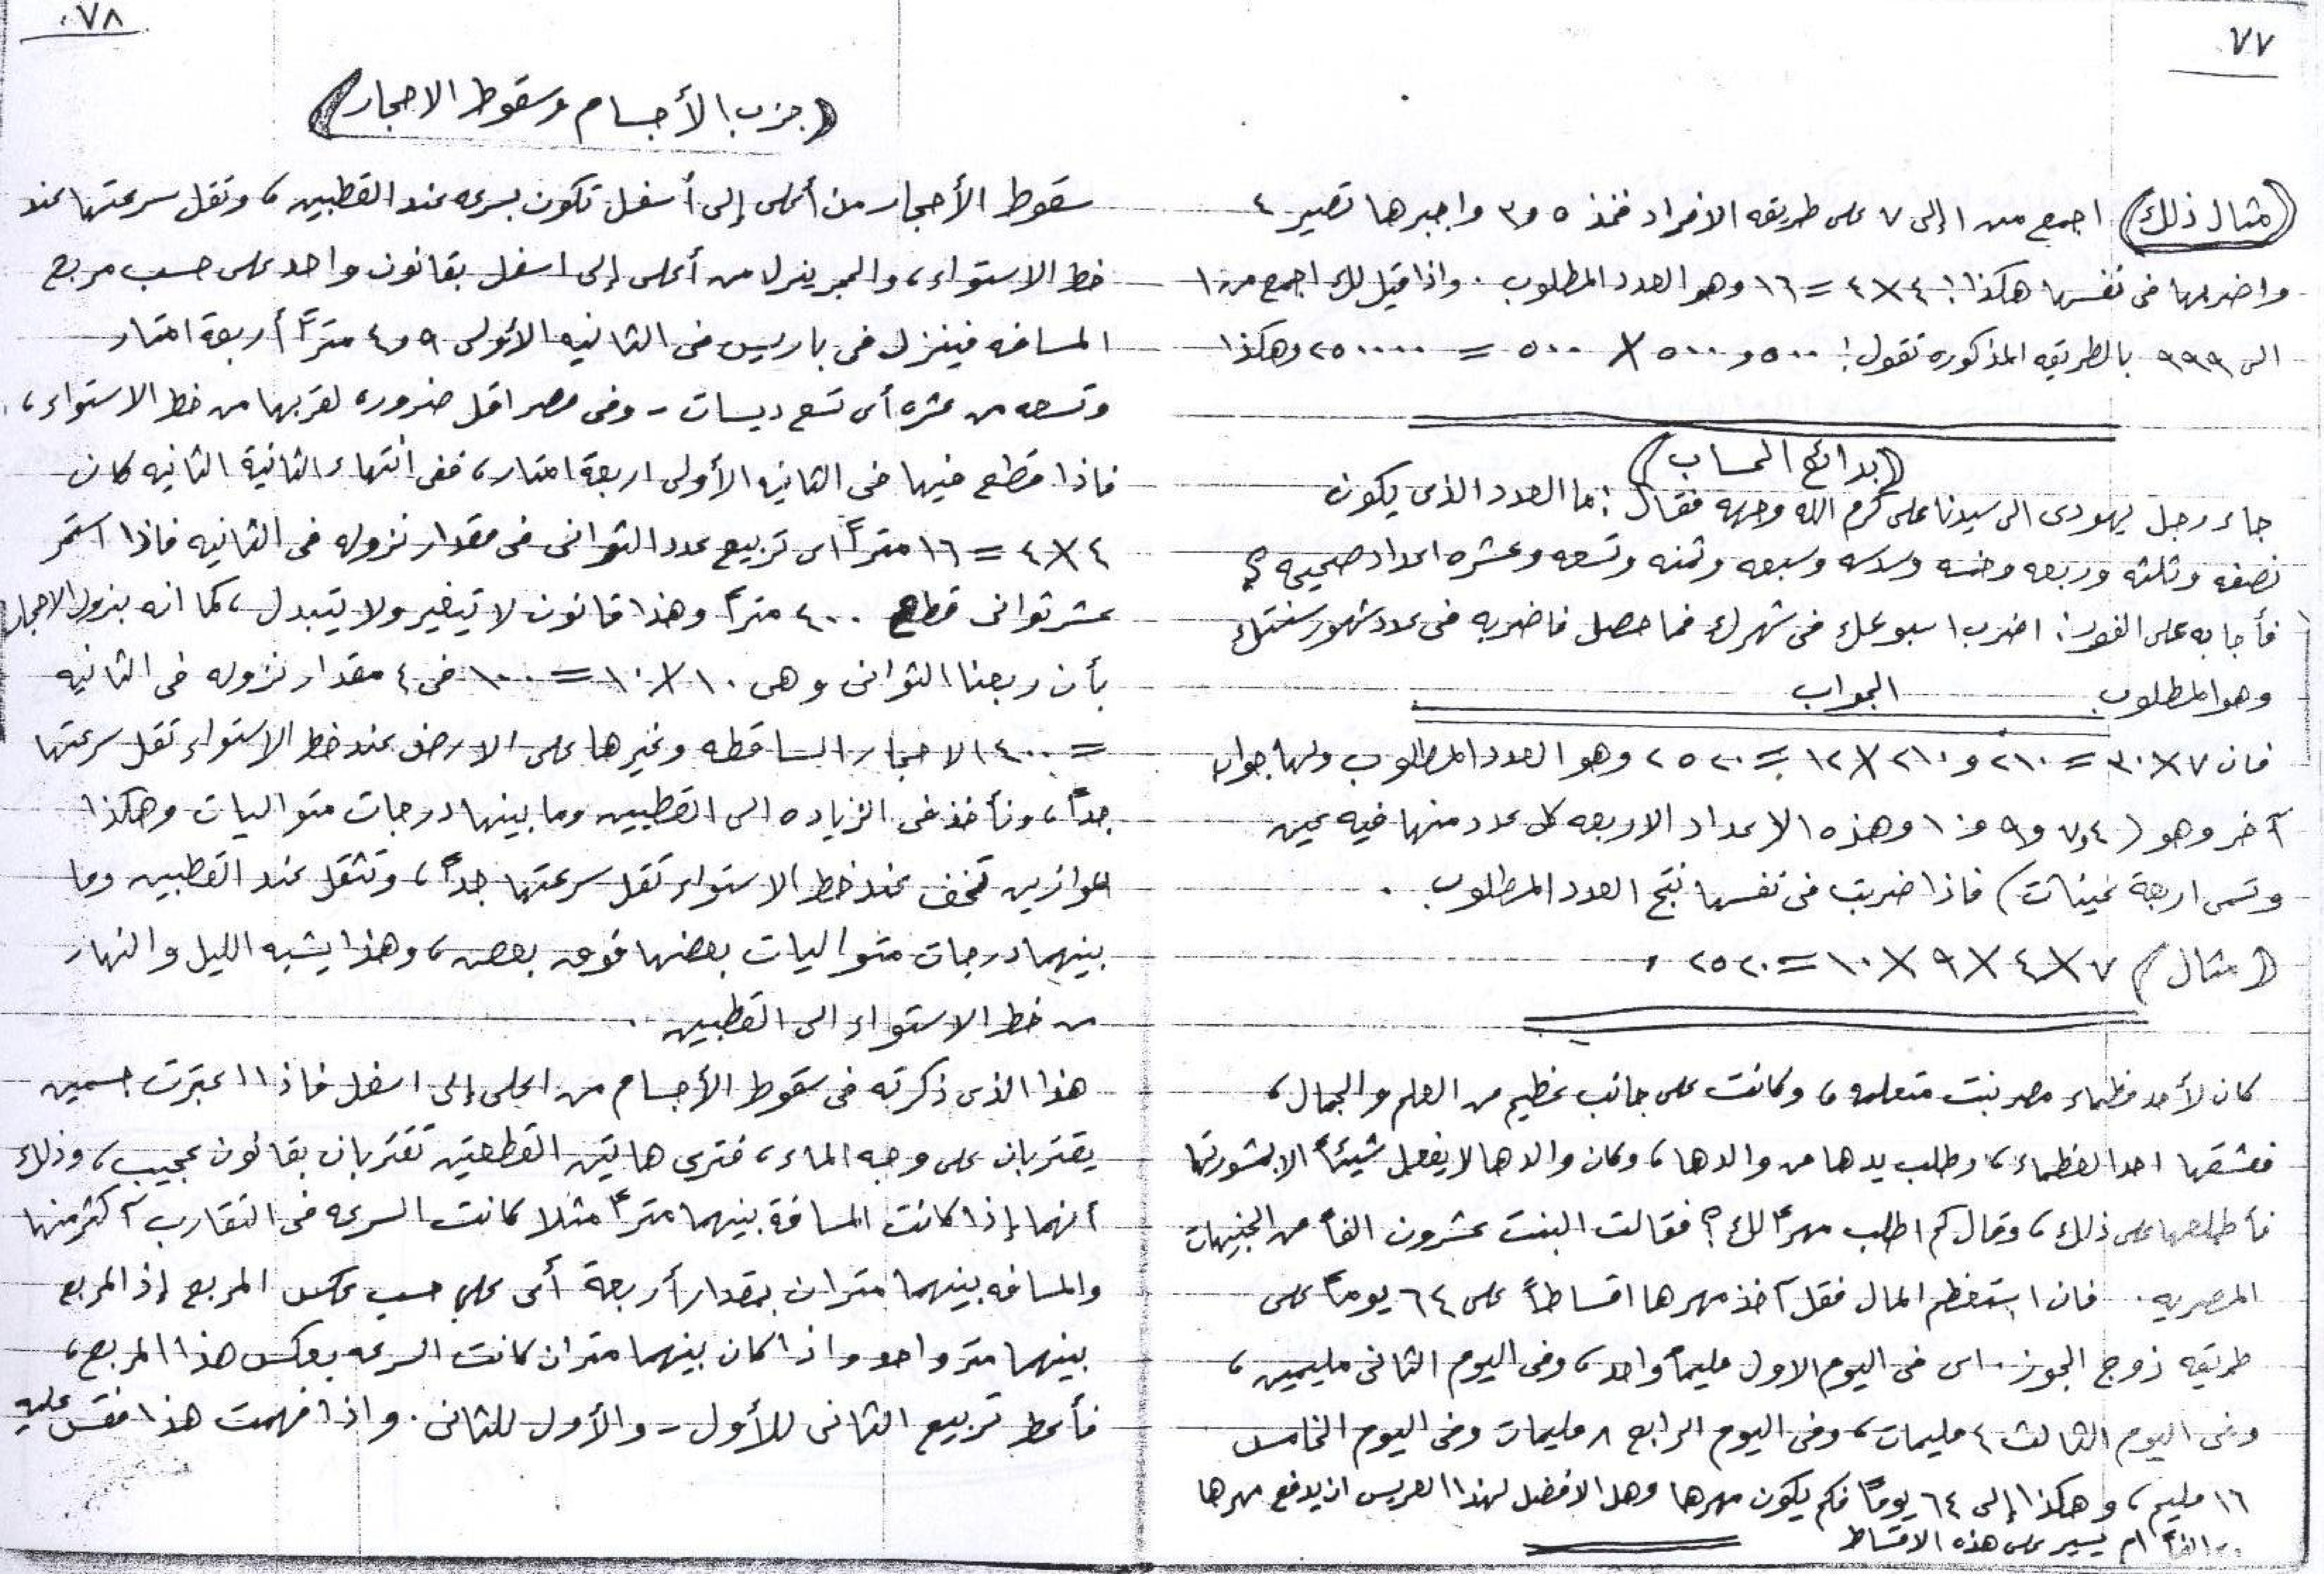 ٧٧
(مثال ذلك) اجمع من ١ إلى ٧ على طريقه الافراد فخذ ٥ و٣ واجبرها تصير ٤
واضربها فى نفسها هكذا: ٤ × ٤ = ١٦ وهو العدد المطلوب . واذا قيل لك اجمع من ١
الى ٩٩٩ بالطريقه المذكوره تقول: ٥٠٠ و ٥٠٠ × ٥٠٠ = ٢٥٠٠٠٠ وهكذا
(بدائع الحساب)
جاء رجل يهودى الى سيدنا على كرم الله وجهه فقال: ما العدد الذى يكون
نصفه وثلثه وربعه وخمسه وسدسه وسبعه وثمنه وتسعه وعشره اعداد صحيحه ؟
فأجابه على الفور: اضرب اسبوعك فى شهرك فما حصل فاضربه فى عدد شهور سنتك
وهو المطلوب الجواب
فان ٧ × ٣٠ = ٢١٠ و ٢١٠ × ١٢ = ٢٥٢٠ وهو العدد المطلوب ولها جواب
آخر وهو (٤ و٧ و٩ و١٠ وهذه الاعداد الاربعه كل عدد منها فيه عين
وتسمى اربعة عينات) فاذا ضربت فى نفسها نتج العدد المطلوب .
(مثال) ٧ × ٤ × ٩ × ١٠ = ٢٥٢٠ .
كان لأحد عظماء مصر بنت متعلمه، وكانت على جانب عظيم من العلم والجمال،
فعشقها احد العظماء، وطلب يدها من والدها، وكان والدها لا يفعل شيئاً الا بمشورتها
فأطلعها على ذلك، وقال كم اطلب مهراً لك؟ فقالت البنت عشرون الفاً من الجنيهات
المصريه . فان استعظم المال فقل آخذ مهرها اقساطاً على ٦٤ يوماً على
طريقه زوج الجوز . اى فى اليوم الاول مليماً واحد، وفى اليوم الثانى مليمين،
وفى اليوم الثالث ٤ مليمات، وفى اليوم الرابع ٨ مليمات وفى اليوم الخامس
١٦ مليم، وهكذا إلى ٦٤ يوماً فكم يكون مهرها وهل الافضل لهذا العريس ان يدفع مهرها
٢٠ الفاً ام يسير على هذه الاقساط
٧٨
(جزب الأجسام وسقوط الاحجار)
سقوط الأحجار من أعلى إلى أسفل تكون بسرعه عند القطبين، وتقل سرعتها عند
خط الاستواء، والحجر ينزل من أعلى إلى اسفل بقانون واحد على حسب مربع
المسافه فينزل فى باريس فى الثانيه الأولى ٩ و٤ متراً أربعة امتار
وتسعه من عشره أى تسع ديسات - وفى مصر اقل ضروره لقربها من خط الاستواء،
فاذا قطع فيها فى الثانيه الأولى اربعة امتار، ففى انتهاء الثانية الثانيه كان
٤ × ٤ = ١٦ متراً اى تربيع عدد الثوانى فى مقدار نزوله فى الثانيه فاذا استمر
عشر ثوانى قطع ٤٠٠ متراً وهذا قانون لا يتغير ولا يتبدل، كما انه بنزول الاحجار
بأن ربعنا الثوانى وهى ١٠ × ١٠ = ١٠٠ فى ٤ مقدار نزوله فى الثانيه
= ٤٠٠ الاحجار الساقطه وغيرها على الارض عند خط الاستواء تقل سرعتها
جداً، وتأخذ فى الزياده الى القطبين وما بينها درجات متواليات وهكذا
الموازين تخف عند خط الاستواء تقل سرعتها جداً، وتثقل عند القطبين وما
بينهما درجات متواليات بعضها فوق بعض، وهذا يشبه الليل والنهار
من خط الاستواء الى القطبين .
هذا الذى ذكرته فى سقوط الأجسام من اعلى إلى اسفل فاذا اعتبرت جسمين
يقتربان على وجه الماء، فترى هاتين القطعتين تقتربان بقانون عجيب، وذلك
أنهما إذا كانت المسافة بينهما متراً مثلا كانت السرعه فى التقارب أكثر منها
والمسافه بينهما متران بمقدار أربعة أى على حسب عكس المربع إذ المربع
بينهما متر واحد واذا كان بينهما متران كانت السرعه بعكس هذا المربع،
فأعط تربيع الثانى للأول - والأول للثانى . واذا فهمت هذا فقس عليه